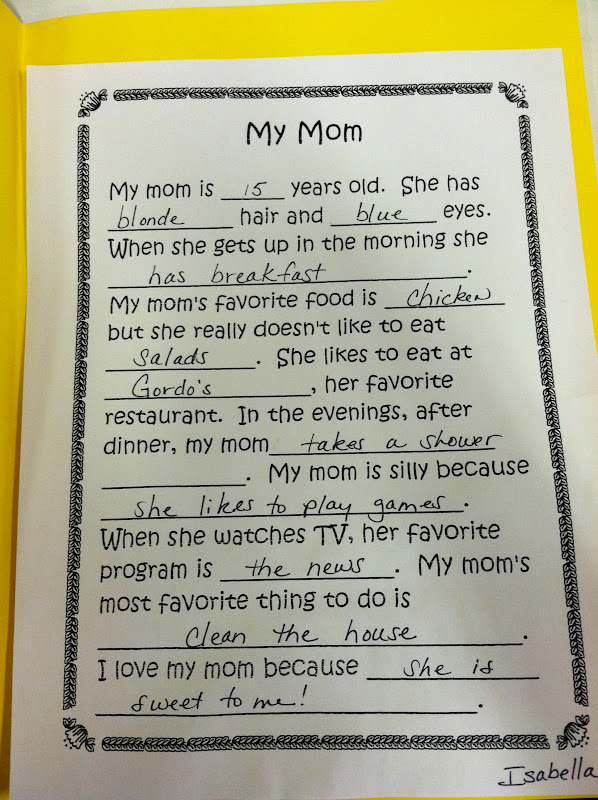 My Mom
My mom is 15 years old. She has
blonde hair and blue eyes.
When she gets up in the morning she
has breakfast.
My mom's favorite food is chicken
but she really doesn't like to eat
salads. She likes to eat at
Gordo's, her favorite
restaurant. In the evenings, after
dinner, my mom takes a shower
. My mom is silly because
she likes to play games.
When she watches TV, her favorite
program is the news. My mom's
most favorite thing to do is
clean the house.
I love my mom because she is
sweet to me!.
Isabella